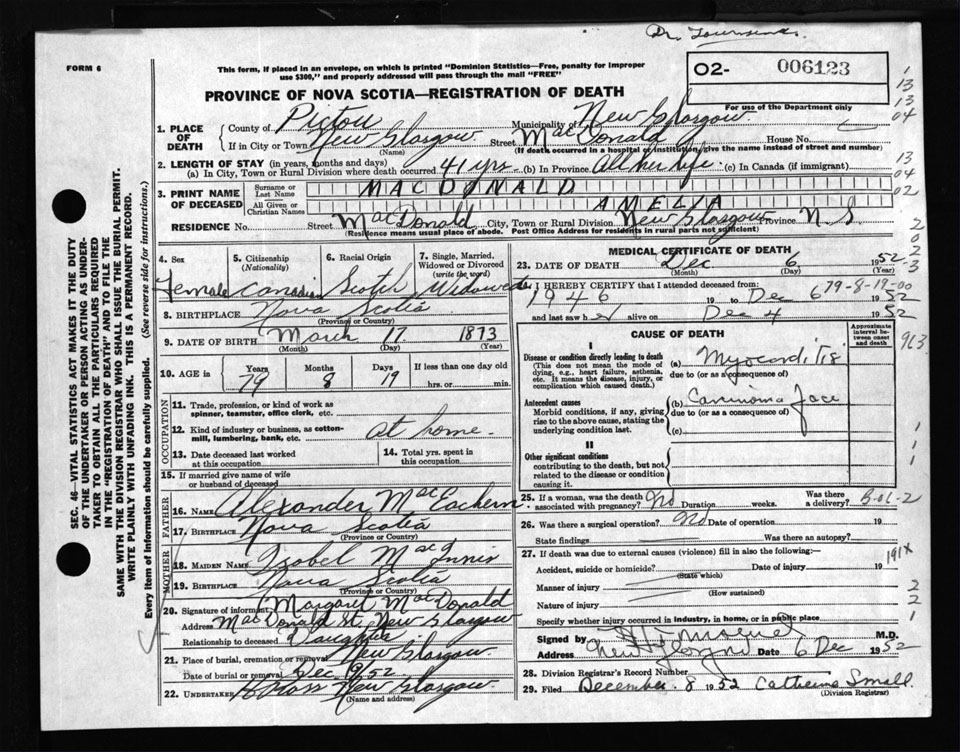 Dr. Townsend.
FORM 6
This form, if placed in an envelope, on which is printed "Dominion Statistics—Free, penalty for improper
use $300," and properly addressed will pass through the mail "FREE"
O2- 006123
For use of the Department only
PROVINCE OF NOVA SCOTIA—REGISTRATION OF DEATH
1. PLACE OF DEATH
County of Pictou Municipality of New Glasgow.
If in City or Town New Glasgow Street MacDonald House No.
(Name) (If death occurred in a hospital or institution, give the name instead of street and number)
2. LENGTH OF STAY (in years, months and days)
(a) In City, Town or Rural Division where death occurred 41 yrs. (b) In Province All her life. (c) In Canada (if immigrant)
3. PRINT NAME OF DECEASED
Surname or Last Name MACDONALD
All Given or Christian Names AMELIA
RESIDENCE No. Street MacDonald City, Town or Rural Division New Glasgow Province N S.
(Residence means usual place of abode. Post Office Address for residents in rural parts not sufficient)
4. Sex Female
5. Citizenship (Nationality) Canadian
6. Racial Origin Scotch
7. Single, Married, Widowed or Divorced (write the word) Widowed
8. BIRTHPLACE Nova Scotia
(Province or Country)
9. DATE OF BIRTH March 17. 1873
(Month) (Day) (Year)
10. AGE in Years 79 Months 8 Days 19 If less than one day old
hrs. or min.
OCCUPATION
11. Trade, profession, or kind of work as
spinner, teamster, office clerk, etc.
12. Kind of industry or business, as cotton-
mill, lumbering, bank, etc. at home.
13. Date deceased last worked at this occupation
14. Total yrs. spent in this occupation
15. If married give name of wife
or husband of deceased
FATHER
16. NAME Alexander MacEachern.
17. BIRTHPLACE Nova Scotia
(Province or Country)
MOTHER
18. MAIDEN NAME Isobel MacInnis
19. BIRTHPLACE Nova Scotia
(Province or Country)
20. Signature of informant Margaret MacDonald
Address MacDonald St. New Glasgow
Relationship to deceased Daughter
21. Place of burial, cremation or removal New Glasgow.
Date of burial or removal Dec 9/52
22. UNDERTAKER New Glasgow.
(Name and address)
MEDICAL CERTIFICATE OF DEATH
23. DATE OF DEATH Dec 6 1952
(Month) (Day) (Year)
I HEREBY CERTIFY that I attended deceased from: 79-8-19-00
1946 19 to Dec 6 1952
and last saw her alive on Dec 4 1952
CAUSE OF DEATH
Approximate interval between onset and death
I
Disease or condition directly leading to death
(This does not mean the mode of
dying, e.g., heart failure, asthenia,
etc. It means the disease, injury, or
complication which caused death.)
(a) Myocarditis
due to (or as a consequence of)
Antecedent causes
Morbid conditions, if any, giving
rise to the above cause, stating the
underlying condition last.
(b) Carcinoma face
due to (or as a consequence of)
(c)
II
Other significant conditions
contributing to the death, but not
related to the disease or condition
causing it.
25. If a woman, was the death
associated with pregnancy? No Duration weeks. Was there a delivery? B-01-2
26. Was there a surgical operation? No Date of operation 19
State findings Was there an autopsy?
27. If death was due to external causes (violence) fill in also the following:—
Accident, suicide or homicide? Date of injury 19
(State which)
Manner of injury
(How sustained)
Nature of injury
Specify whether injury occurred in industry, in home, or in public place
Signed by M.D.
Address New Glasgow Date 6 Dec 1952
28. Division Registrar's Record Number
29. Filed December 8 1952 Catherine Small.
(Division Registrar)
SEC. 46—VITAL STATISTICS ACT MAKES IT THE DUTY
OF THE UNDERTAKER OR PERSON ACTING AS UNDER-
TAKER TO OBTAIN ALL THE PARTICULARS REQUIRED
IN THE "REGISTRATION OF DEATH" AND TO FILE THE
SAME WITH THE DIVISION REGISTRAR WHO SHALL ISSUE THE BURIAL PERMIT.
WRITE PLAINLY WITH UNFADING INK. THIS IS A PERMANENT RECORD.
Every item of information should be carefully supplied. (See reverse side for instructions.)
1
13
13
04
13
04
02
2
0
2
3
913
1
1
1
191x
2
2
1